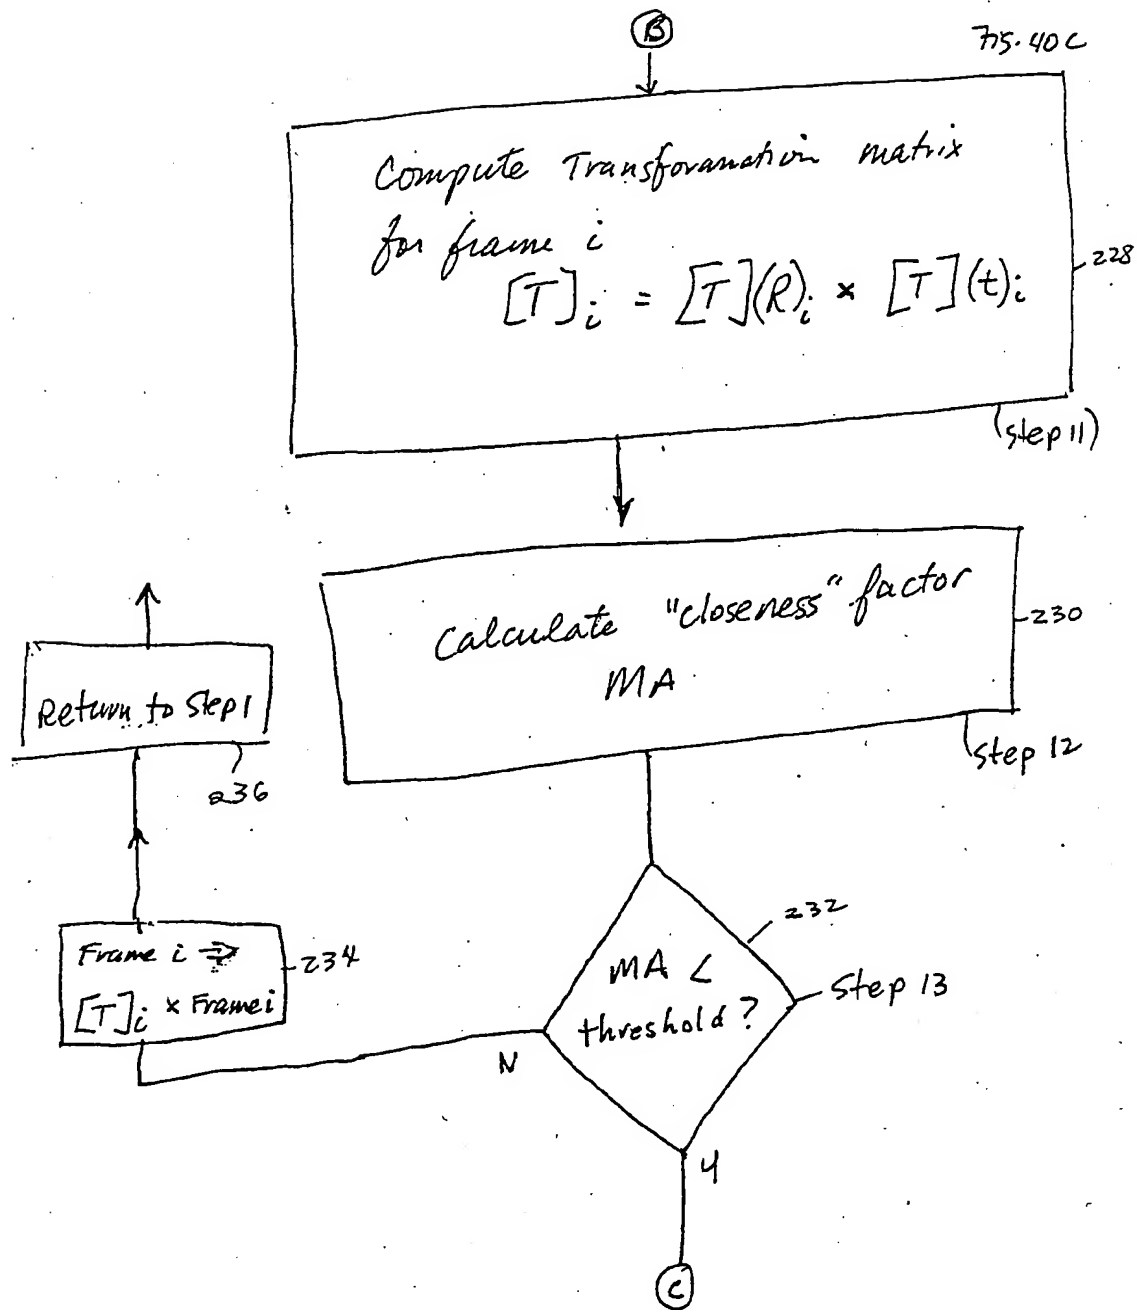 B
Fig. 40C
Compute Transforamation matrix
for frame i
[T]i = [T](R)i × [T](t)i
228
(step 11)
Calculate "closeness" factor
MA
230
Step 12
Return to Step 1
236
Frame i ⇒
[T]i × Frame i
234
MA <
threshold?
232
Step 13
N
Y
C